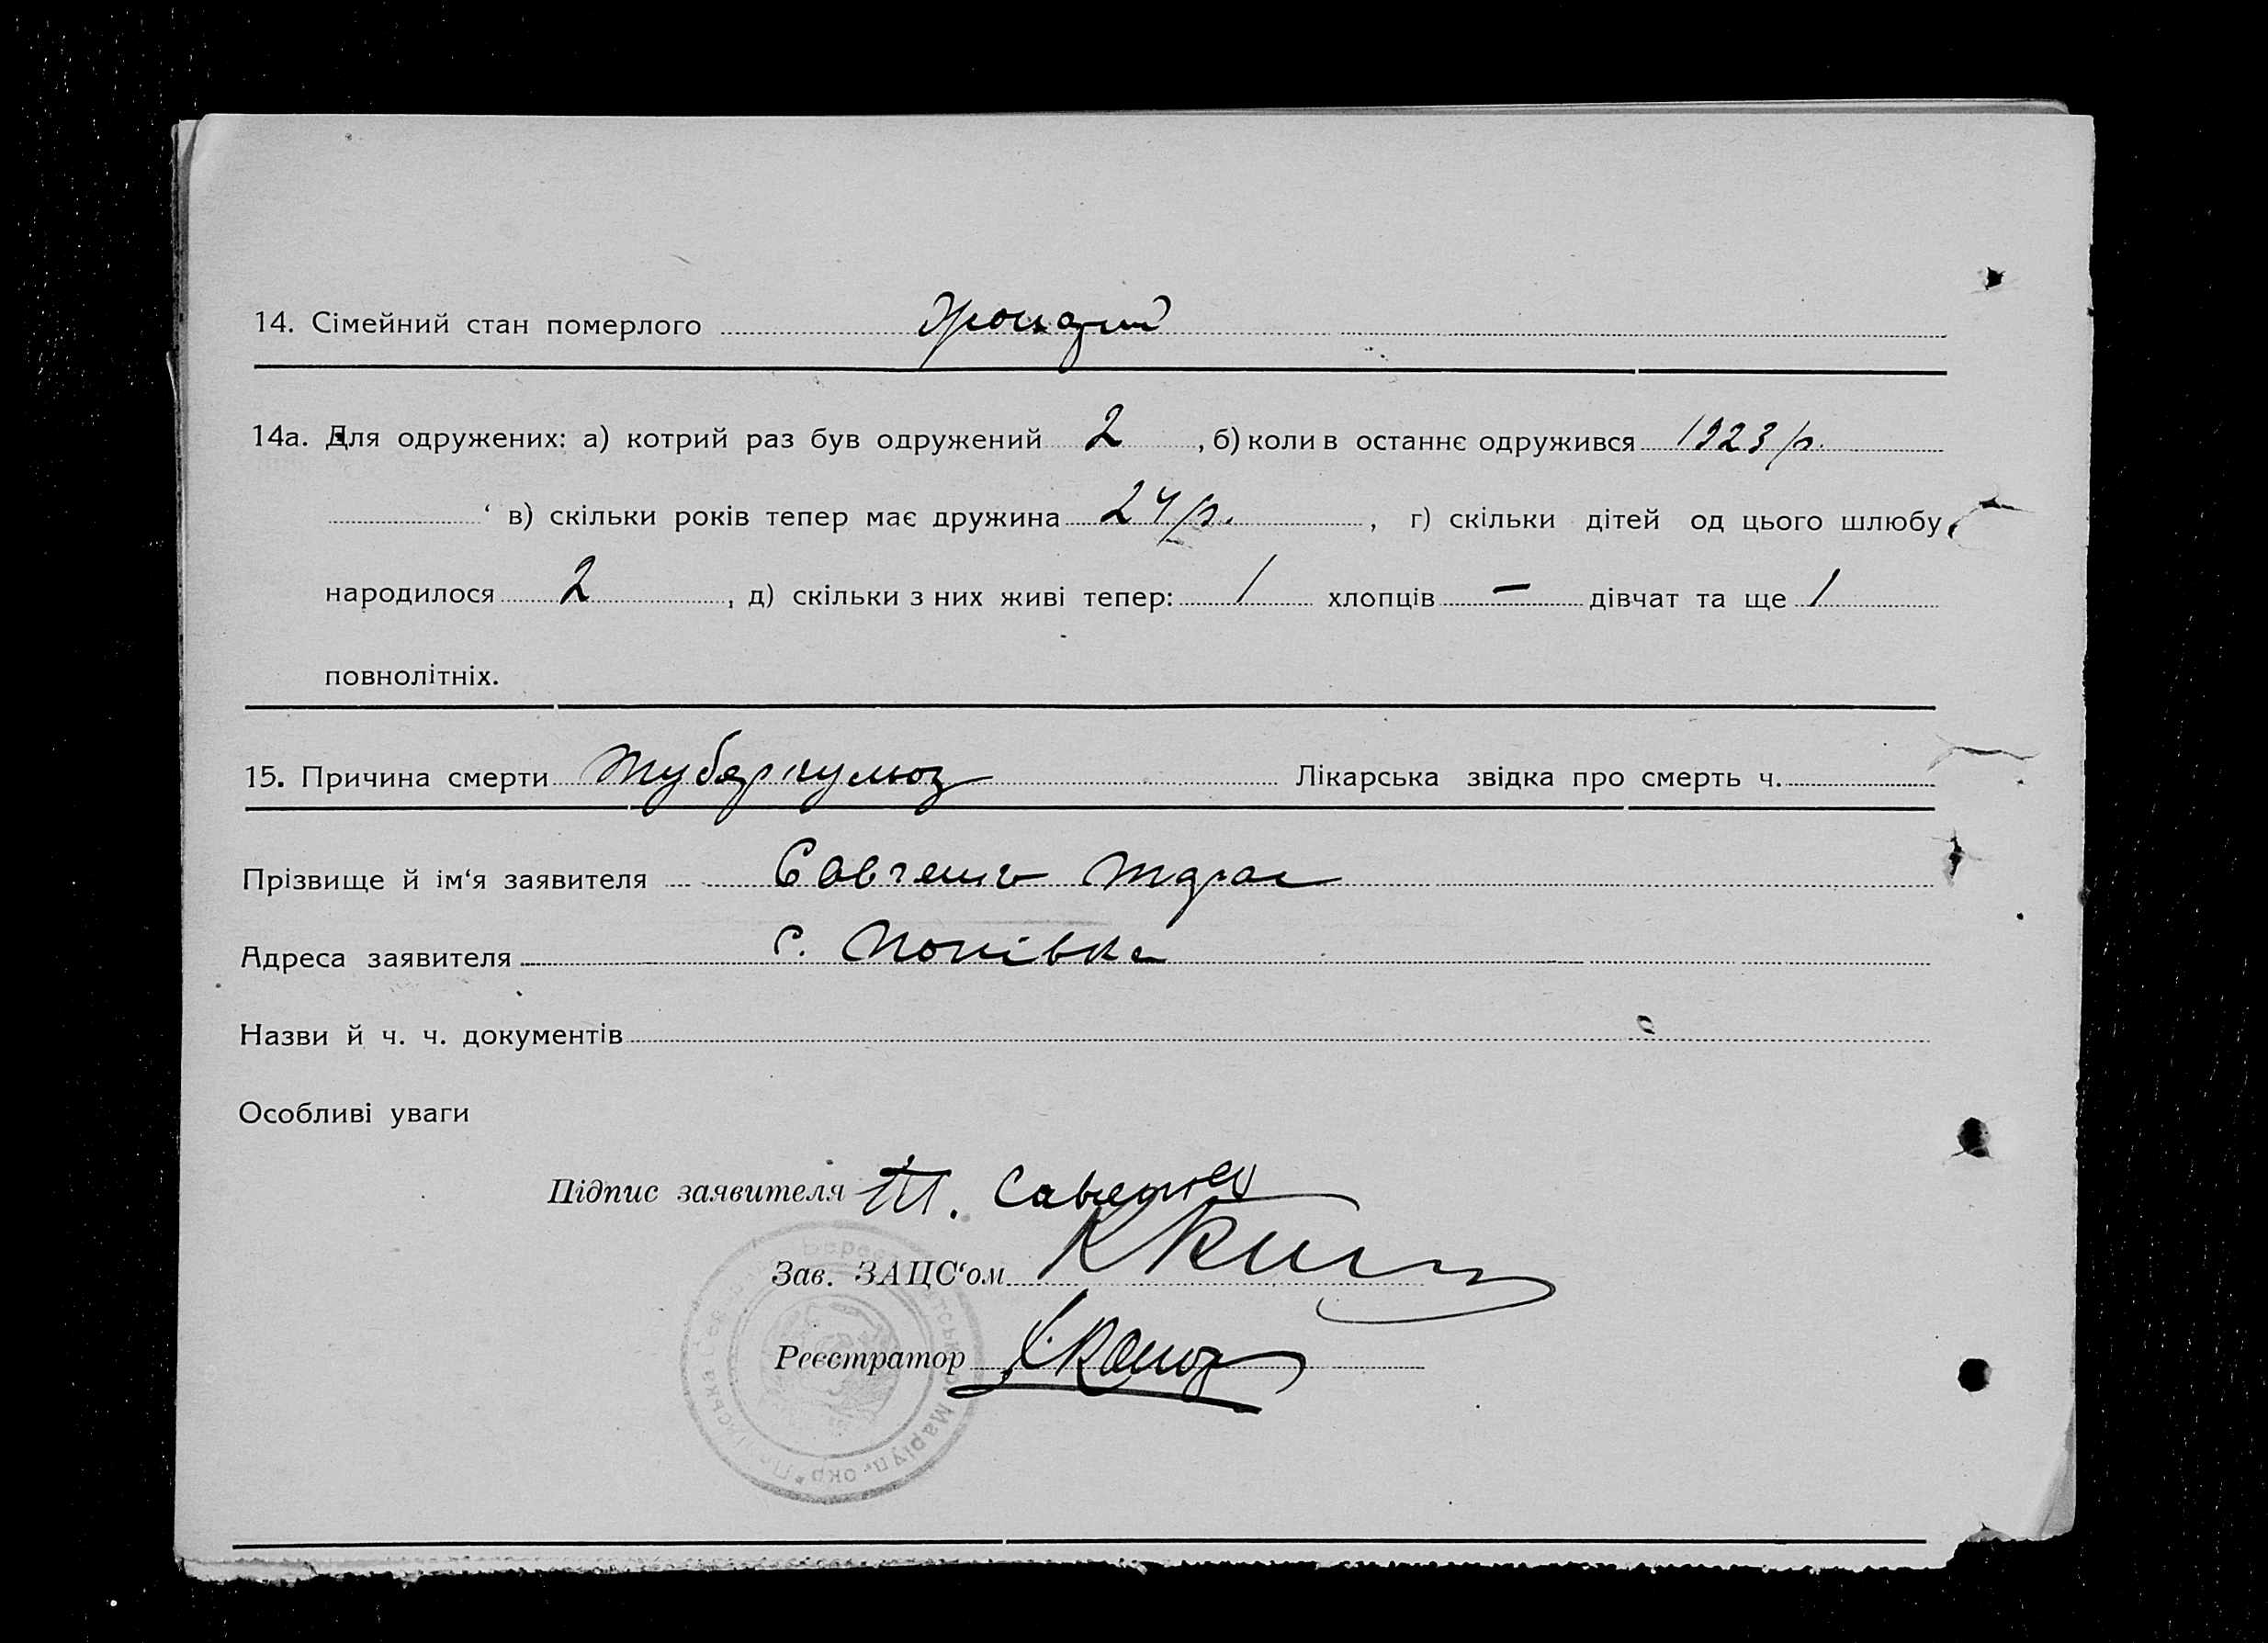 14. Сімейний стан померлого
14а. Для одружених: а) котрий раз був одружений 2, б) коли в останнє одружився 1923 р.
‘ в) скільки років тепер має дружина 24 р., г) скільки дітей од цього шлюбу,
народилося 2, д) скільки з них живі тепер: 1 хлопців — дівчат та ще 1
повнолітніх.
15. Причина смерти туберкульоз Лікарська звідка про смерть ч.
Прізвище й ім‘я заявителя Савченко
Адреса заявителя с. Попівка
Назви й ч. ч. документів
Особливі уваги
Підпис заявителя Т.
Зав. ЗАЦС‘ом
Реєстратор
Маріуп. окр.